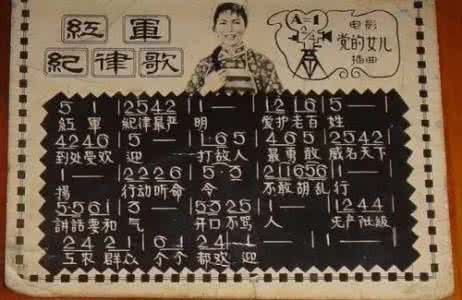 紅軍
紀律歌
A=1
2/4
电影
党的女儿
插曲
5 1 | 2542 | 1 — | 1216 | 5 —
紅軍 紀律最严 明 爱护老百 姓
4246 | 5 — | 165 | 465 | 2542
到处受欢 迎 打敌人 最勇敢 威名天下
1 — | 2226 | 5·3 | 211656 | 1 —
揚 行动听命 令 不敢胡乱 行
5561 | 3 — | 5325 | 1 — | 1244
講話要和 气 开口不骂 人 无产阶級
2421 | 6124 | 1 —
工农群众 个个都欢 迎